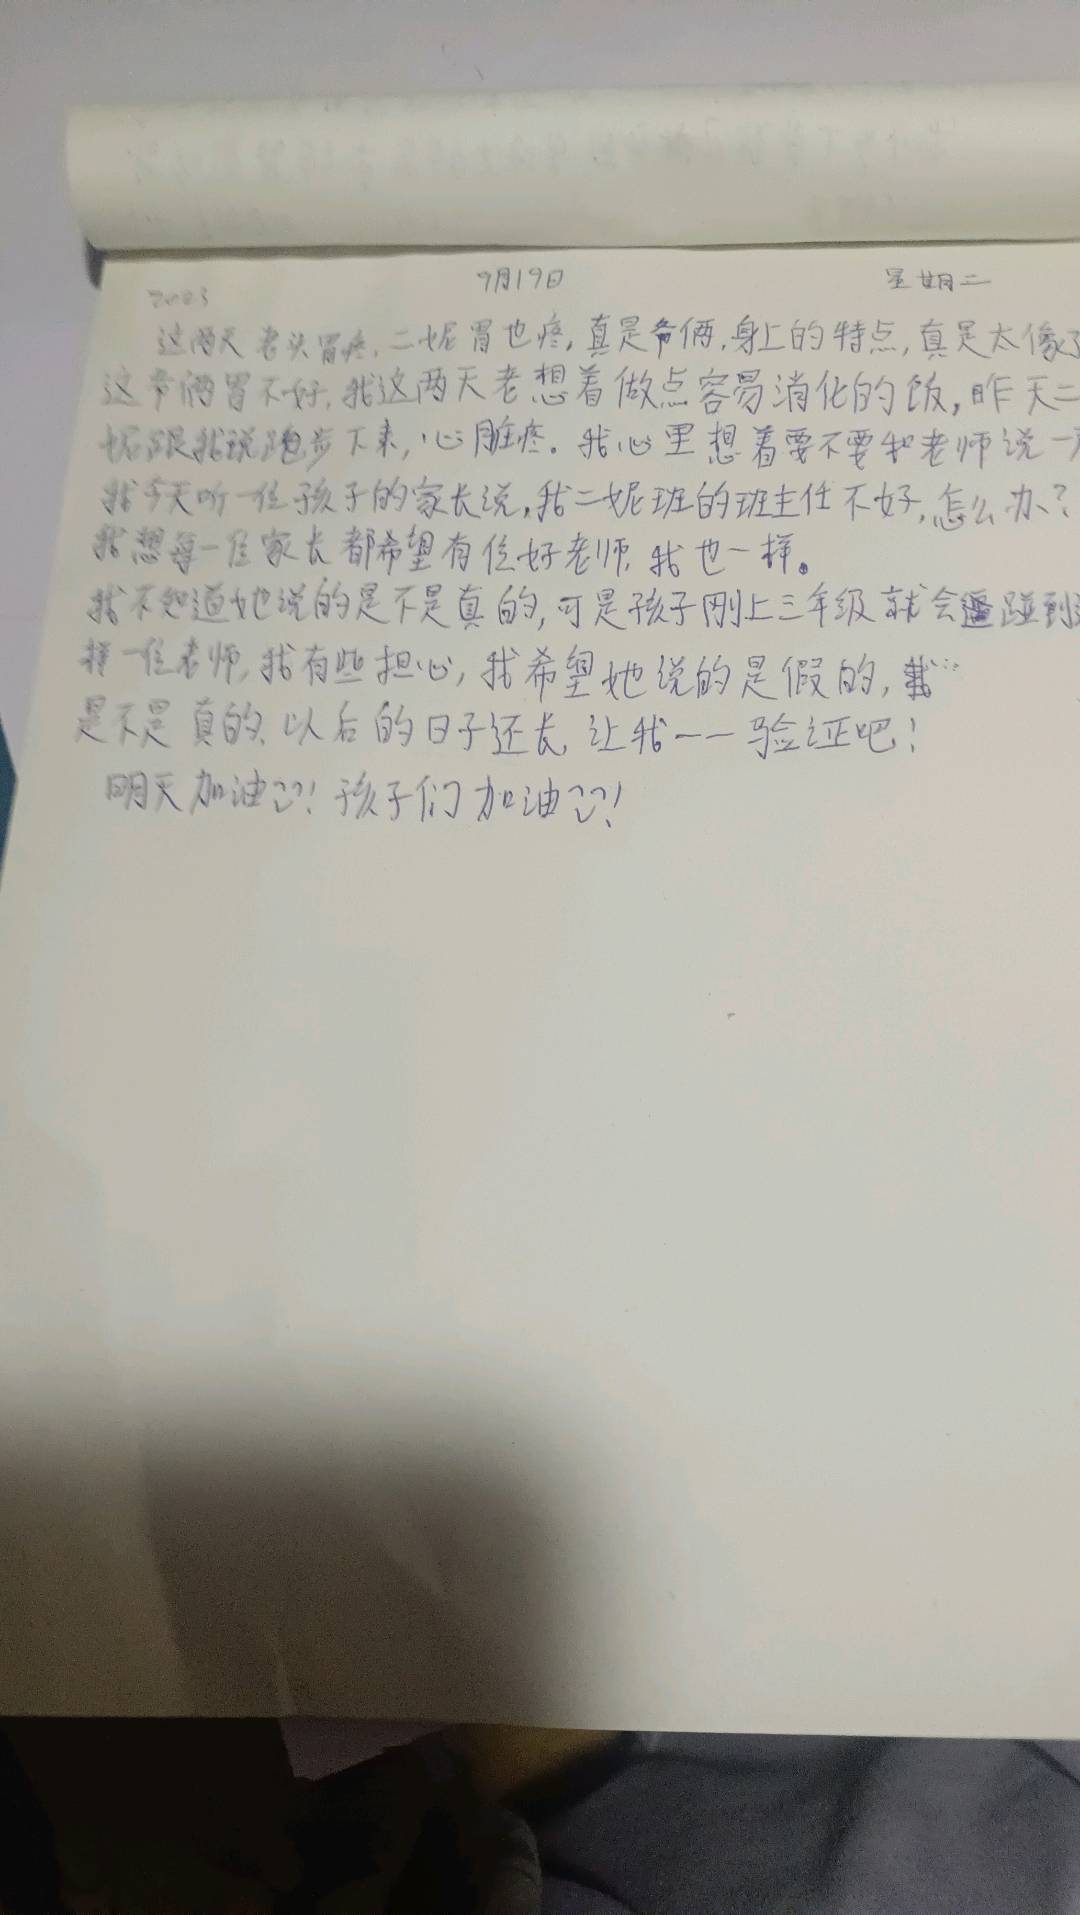 2023 9月19日 星期二
这两天老头胃疼,二妮胃也疼,真是爷俩,身上的特点,真是太像了
这爷俩胃不好,我这两天老想着做点容易消化的饭,昨天二
妮跟我说跑步下来,心脏疼。我心里想着要不要和老师说一
我今天听一位孩子的家长说,我二妮班的班主任不好,怎么办?
我想每一位家长都希望有位好老师,我也一样。
我不知道她说的是不是真的,可是孩子刚上三年级就会碰到这
样一位老师,我有些担心,我希望她说的是假的,
是不是真的、以后的日子还长,让我一一验证吧!
明天加油!孩子们加油!